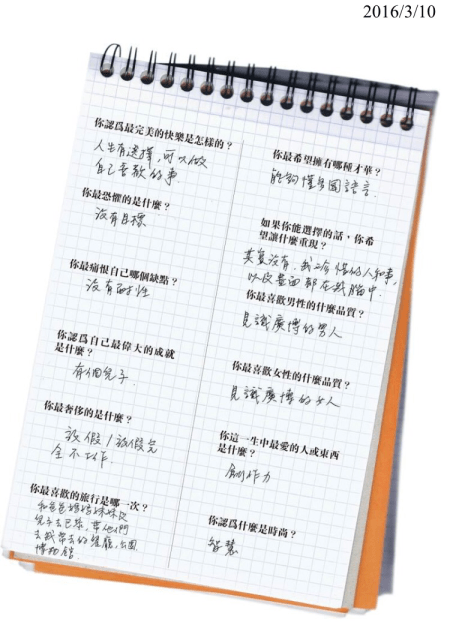 2016/3/10
你認爲最完美的快樂是怎樣的？
人生有選擇，可以做
自己喜歡的事.
你最恐懼的是什麼？
沒有目標
你最痛恨自己哪個缺點？
沒有耐性
你認爲自己最偉大的成就
是什麼？
有個兒子.
你最奢侈的是什麼？
放假/放假完
全不工作.
你最喜歡的旅行是哪一次？
和爸爸媽媽妹妹及
兒子去巴黎，帶他們
去我常去的餐廳，公園
博物館.
你最希望擁有哪種才華？
能夠懂各國語言.
如果你能選擇的話，你希
望讓什麼重現？
其實沒有，我珍惜的人和事，
以及畫面都在我腦中.
你最喜歡男性的什麼品質？
見識廣博的男人
你最喜歡女性的什麼品質？
見識廣博的女人
你這一生中最愛的人或東西
是什麼？
創作力
你認爲什麼是時尚？
智慧